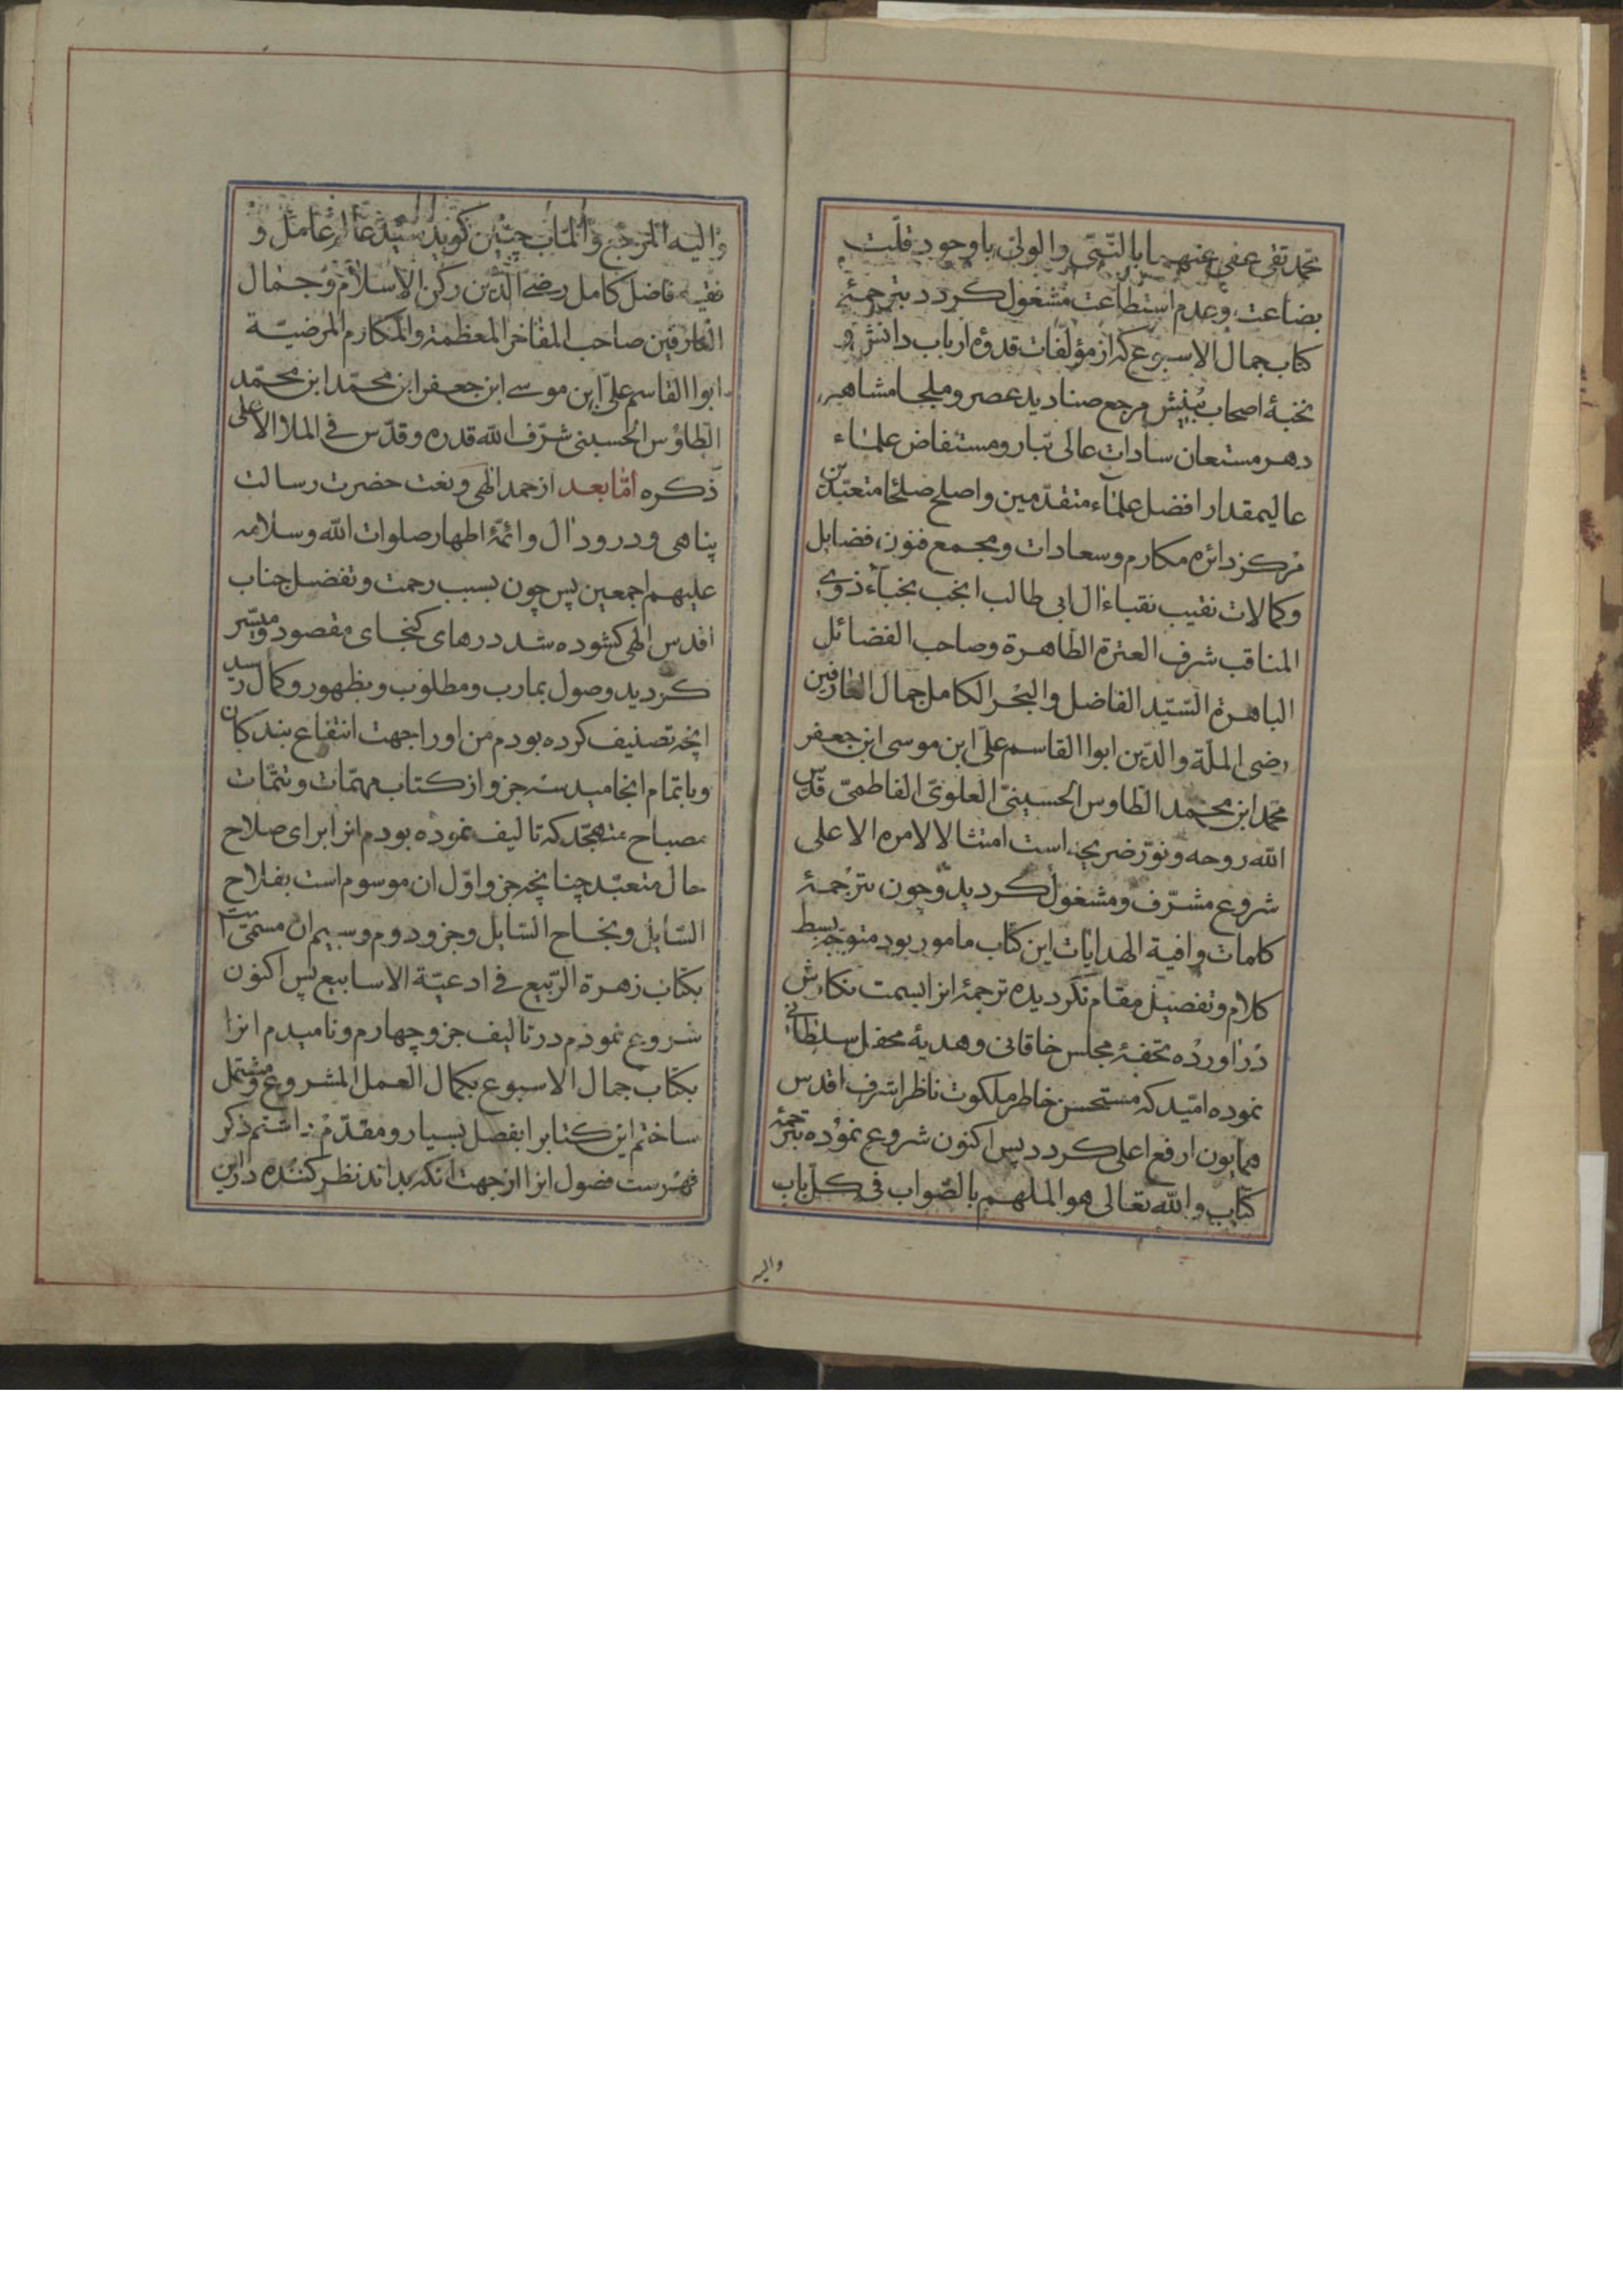 محمد تقی عفی عنهما بالنّبیّ والولیّ باوجود قلّت
بضاعت وعدم استطاعت مشغول کردد بترجمهٔ
کتاب جمال الاسبوع که از مؤلفات قدوهٔ ارباب دانش و
نخبهٔ اصحاب بینش مرجع صنادید عصر وملجا مشاهیر
دهر مستعان سادات عالی تبار ومستفاض علماء
عالیمقدار افضل علماء متقدّمین واصلح صلحا متعبّدین
مرکز دائره مکارم وسعادات ومجمع فنون فضایل
وکمالات نقیب نقباء ال ابی طالب انجب نجباء ذوی
المناقب شرف العترة الطاهرة وصاحب الفضائل
الباهرة السّیّد الفاضل والبحر الکامل جمال العارفین
رضی الملّة والدّین ابوا القاسم علی ابن موسی ابن جعفر
محمد ابن محمد الطاوس الحسینیّ العلویّ الفاطمیّ قدّس
الله روحه ونوّر ضریحه است امتثالا لامره الاعلی
شروع مشرّف ومشغول کردید وچون بترجمهٔ
کلمات وافیة الهدایات این کتاب مامور بود متوجّه بسط
کلام وتفصیل مقام نکردیده ترجمهٔ انرا بسمت نکارش
دراورده تحفهٔ مجلس خاقانی وهدیهٔ محفل سلطانی
نموده امّید که مستحسن خاطر ملکوت ناظر اشرف اقدس
همایون ارفع اعلی کردد پس اکنون شروع نموده بترجمهٔ
کتاب والله تعالی هو الملهم بالصّواب فی کل باب
والیه
والیه المرجع والماب چنین کوید سیّد عالم عامل و
فقیه فاضل کامل رضی الدّین رکن الاسلام وجمال
العارفین صاحب المفاخر المعظمة والمکارم المرضیّة
ابوا القاسم علیّ ابن موسی ابن جعفر ابن محمّد ابن محمّد
الطاوس الحسینی شرّف الله قدره وقدّس فی الملا الاعلی
ذکره امّا بعد از حمد الهی ونعت حضرت رسالت
پناهی ودرود ال وائمّهٔ اطهار صلوات الله وسلامه
علیهم اجمعین پس چون بسبب رحمت وتفضل جناب
اقدس الهی کشوده شد درهای کنجهای مقصود ومیسّر
کردید وصول بمارب ومطلوب وبظهور وکمال رسید
انچه تصنیف کرده بودم من اورا جهت انتفاع بندکان
وباتمام انجامید سه جزو از کتاب مهمّات وتتمّات
مصباح متهجّد که تالیف نموده بودم انرا برای صلاح
حال متعبّد چنانچه جزو اوّل ان موسوم است بفلاح
السّایل ونجاح السّایل وجزو دوم وسیم ان مسمّی است
بکتاب زهرة الرّبیع فی ادعیّة الاسابیع پس اکنون
شروع نمودم در تالیف جزو چهارم ونامیدم انرا
بکتاب جمال الاسبوع بکمال العمل المشروع ومشتمل
ساختم این کتابرا بفصل بسیار ومقدّم داشتم ذکر
فهرست فصول انرا از جهت انکه بداند نظر کننده در این